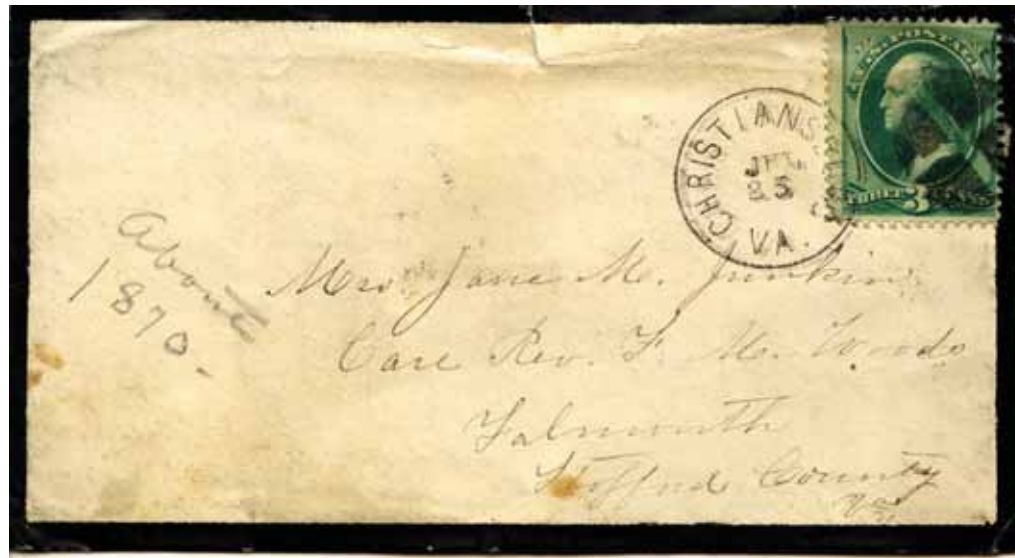 U.S. POSTAGE
THREE 3 CENTS
CHRISTIANS
25
VA.
About
1870.
Mrs. Jane M. Junkin
Care Rev. F. M. Woods
Falmouth
Stafford County
Va.